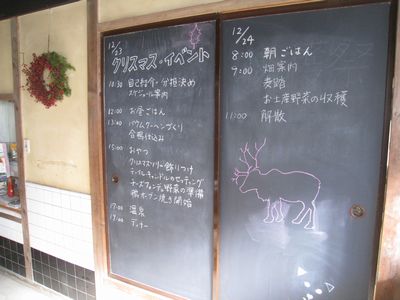 12/23
クリスマス・イベント
10:30 自己紹介・分担決め
スケジュール案内
12:00 お昼ごはん
13:00 バウムクーヘンづくり
合鴨仕込み
15:00 おやつ
クリスマスツリー飾りつけ
テーブルキャンドルのセッティング
チーズフォンデュ野菜の準備
鴨オーブン焼き開始
17:00 温泉
19:00 ディナー
12/24
8:00 朝ごはん
9:00 畑案内
麦踏
お土産野菜の収穫
11:00 解散